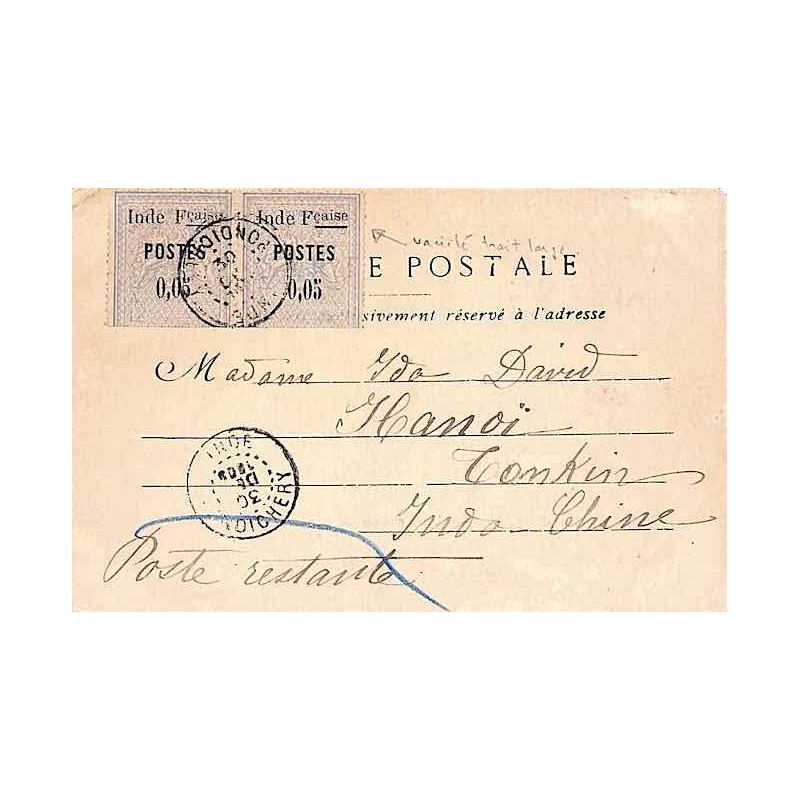 Inde Fçaise Inde Fçaise
POSTES POSTES
0,05 0,05
variété trait large
E POSTALE
sivement réservé à l'adresse
Madame Ida David
Hanoï
Tonkin
Indo Chine
INDE
1903
DÉ
30
DICHERY
Poste restante